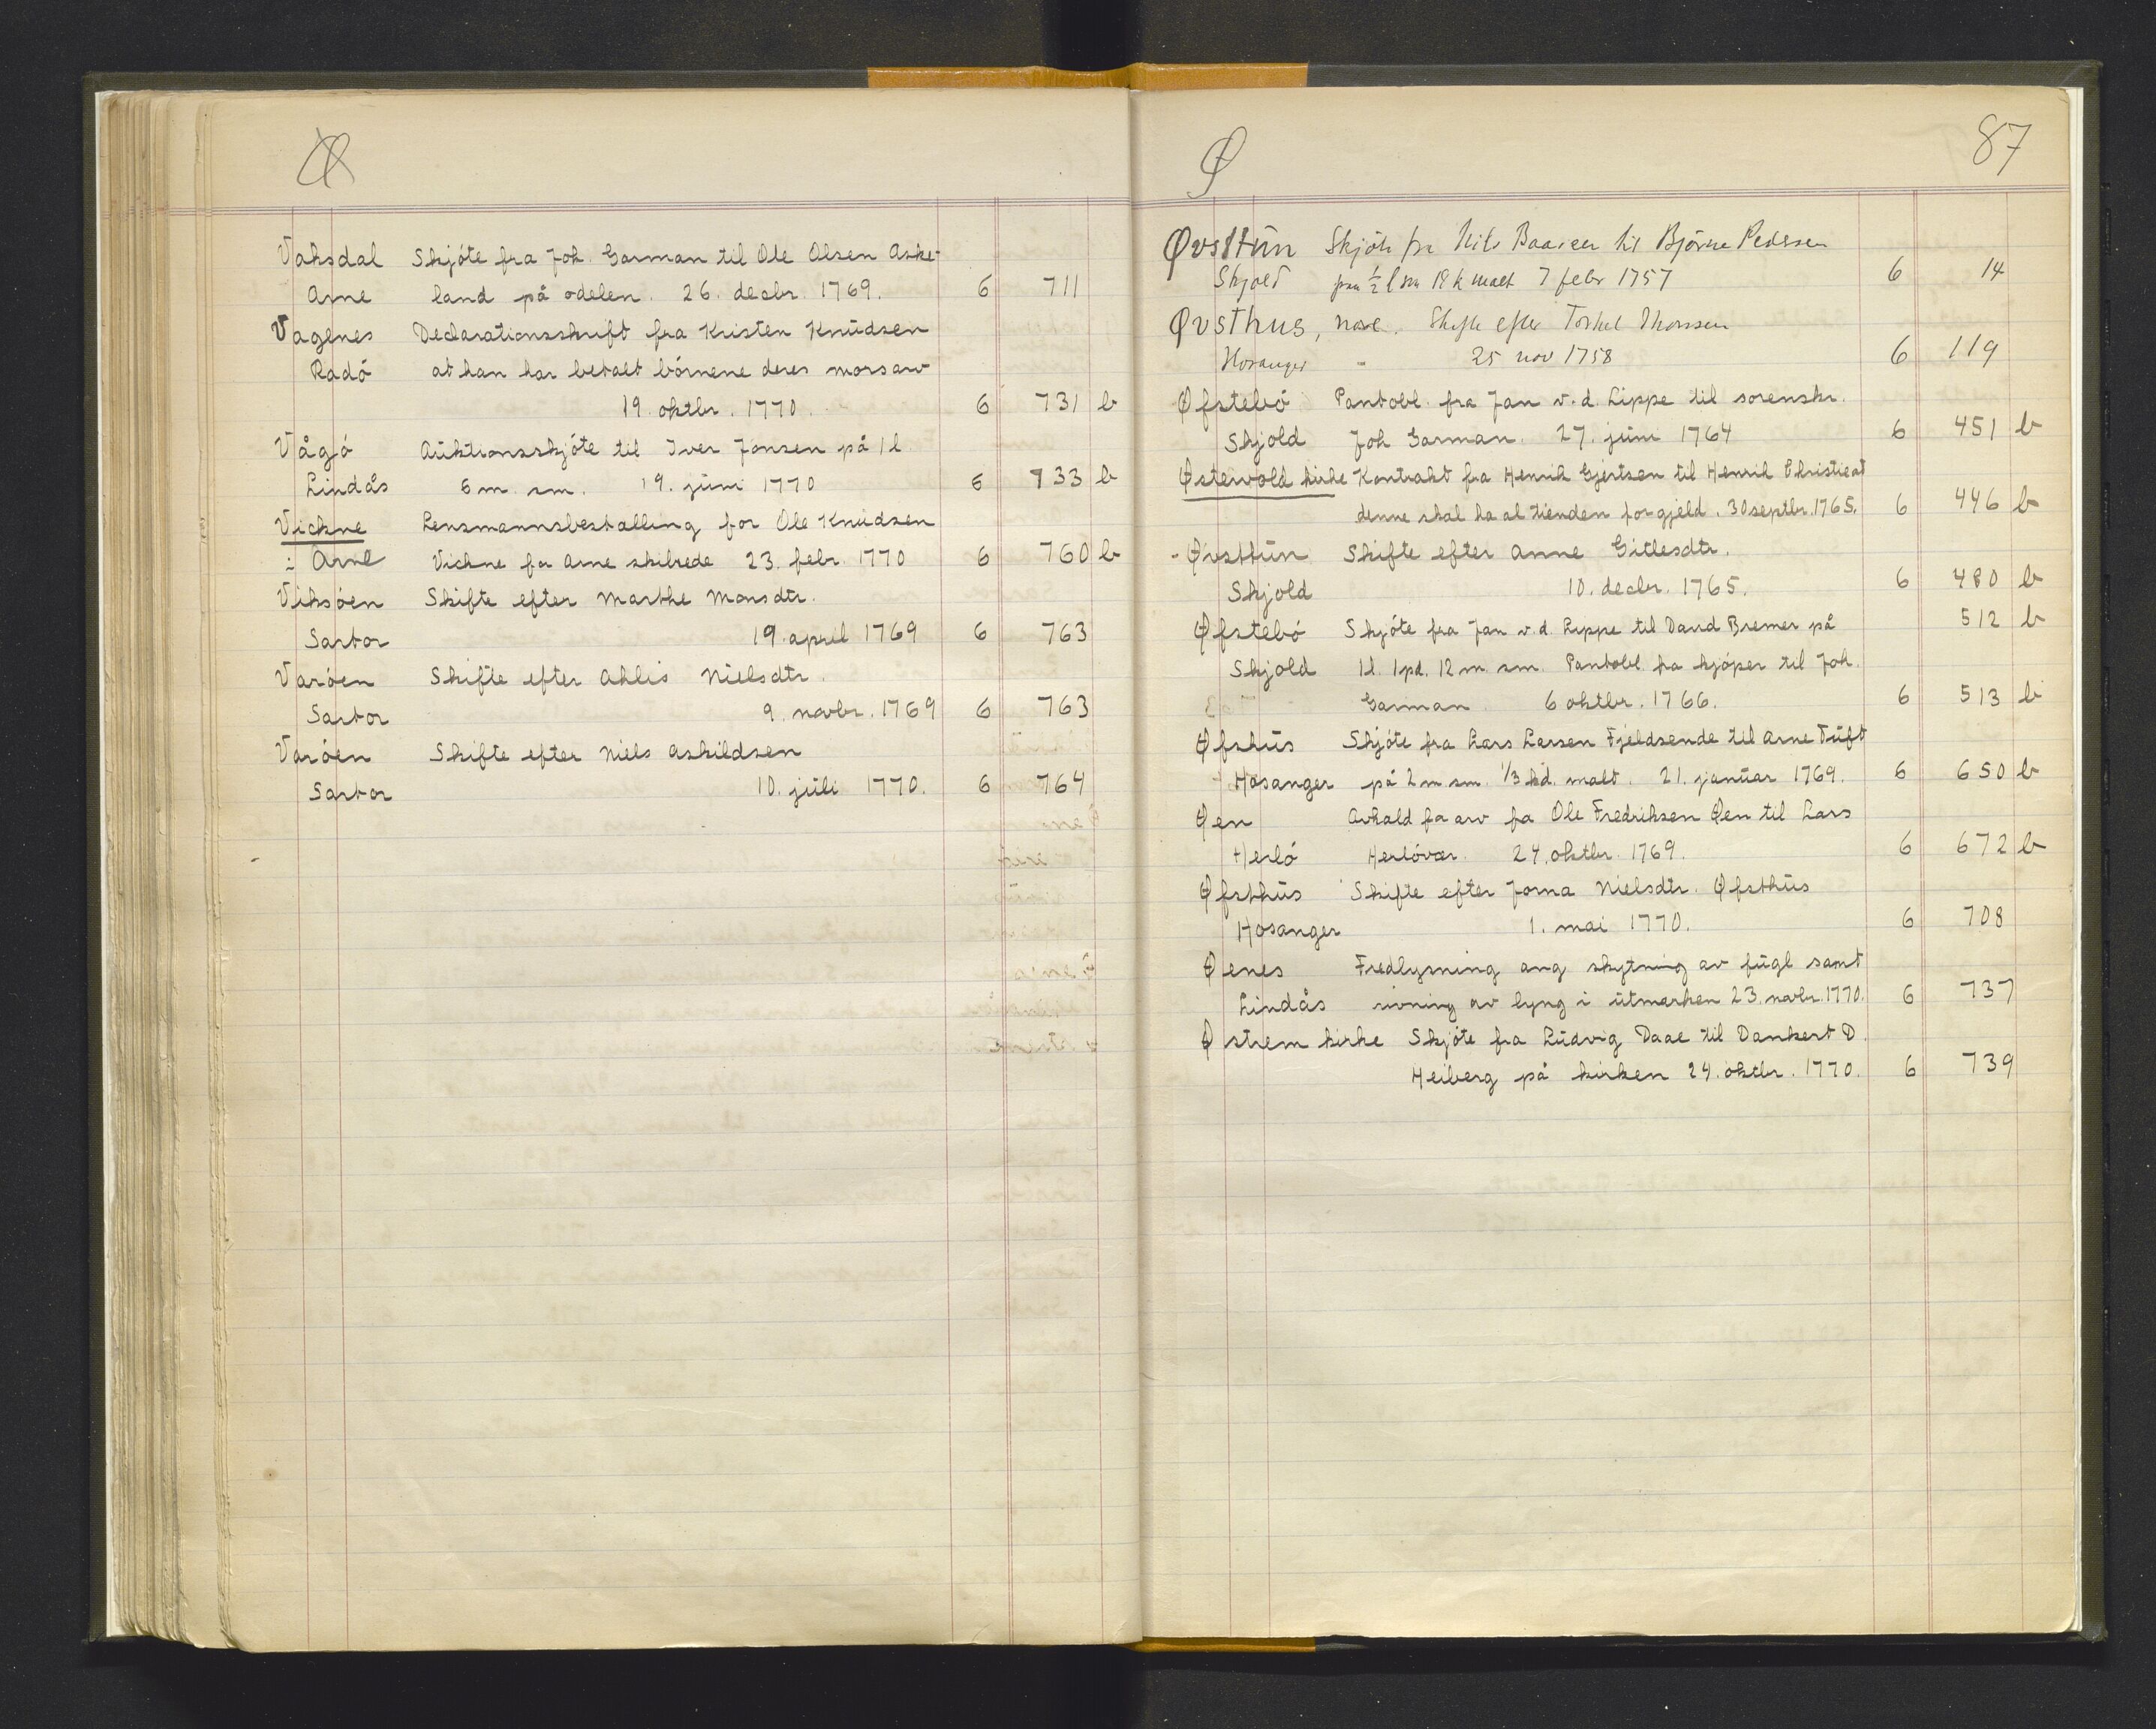 Ø
Vaksdal Skjóte fra Joh. Garman til Ole Olsen Aske-
Arne land på odelen. 26. decbr. 1769. 6 711
Vagenes Declarationsskrift fra Kristen Knudsen
Radó at han har betalt bórnene deres morsarv
19. oktbr. 1770. 6 731 b
Vågó Auktionsskjóte til Iver Jonsen på 1 l.
Lindås 6 m. sm. 19. juni 1770 6 733 b
Vickne Lensmannsbestalling for Ole Knudsen
i Arne Vickne for Arne skibrede 23. febr. 1770 6 760 b
Viksóen Skifte efter Marthe Monsdtr.
Sartor 19. april 1769 6 763
Varóen Skifte efter Ahlis Nielsdtr.
Sartor 9. novbr. 1769 6 763
Varóen Skifte efter Niels Askildsen
Sartor 10. juli 1770. 6 764
Ø 87
Øvsttun Skjöte fra Nils Baaseer til Björne Pedersen
Skjold paa ½ l sm 18 k malt 7 febr 1757 6 14
Øvsthus, Skifte efter Torkel Monssen
Hosanger 25 nov 1758 6 119
Øfstebó Pantobl. fra Jan v. d. Lippe til sorenskr.
Skjold Joh Garman. 27. juni 1764 6 451 b
Østervold kirke Kontrakt fra Henrik Gjertsen til Henrik Christie at
denne skal ha al tienden for gjeld. 30 septbr. 1765. 6 446 b
- Øvsttun Skifte efter Anne Gitlesdtr.
Skjold 10. decbr. 1765. 6 480 b
Øfstebó Skjóte fra Jan v. d. Lippe til David Bremer på 512 b
Skjold 1 l. 1 pd. 12 m. sm. Pantobl. fra kjóper til Joh.
Garman. 6 oktbr. 1766. 6 513 b
Øfshus Skjóte fra Lars Larsen Fjeldsende til Arne Tuft
Hosanger på 2 m sm. 1/3 hd. malt. 21. januar 1769. 6 650 b
Øen Avkald for arv fra Ole Fredriksen Øen til Lars
Herló Herlóvær. 24. oktbr. 1769. 6 672 b
Øfsthus Skifte efter Jorna Nielsdtr. Øfsthus
Hosanger 1. mai 1770. 6 708
Øenes Fredlysning ang skytning av fugl samt
Lindås rivning av lyng i utmarken 23. novbr. 1770. 6 737
Østrem kirke Skjóte fra Ludvig Daae til Dankert D.
Heiberg på kirken 24. oktbr. 1770. 6 739